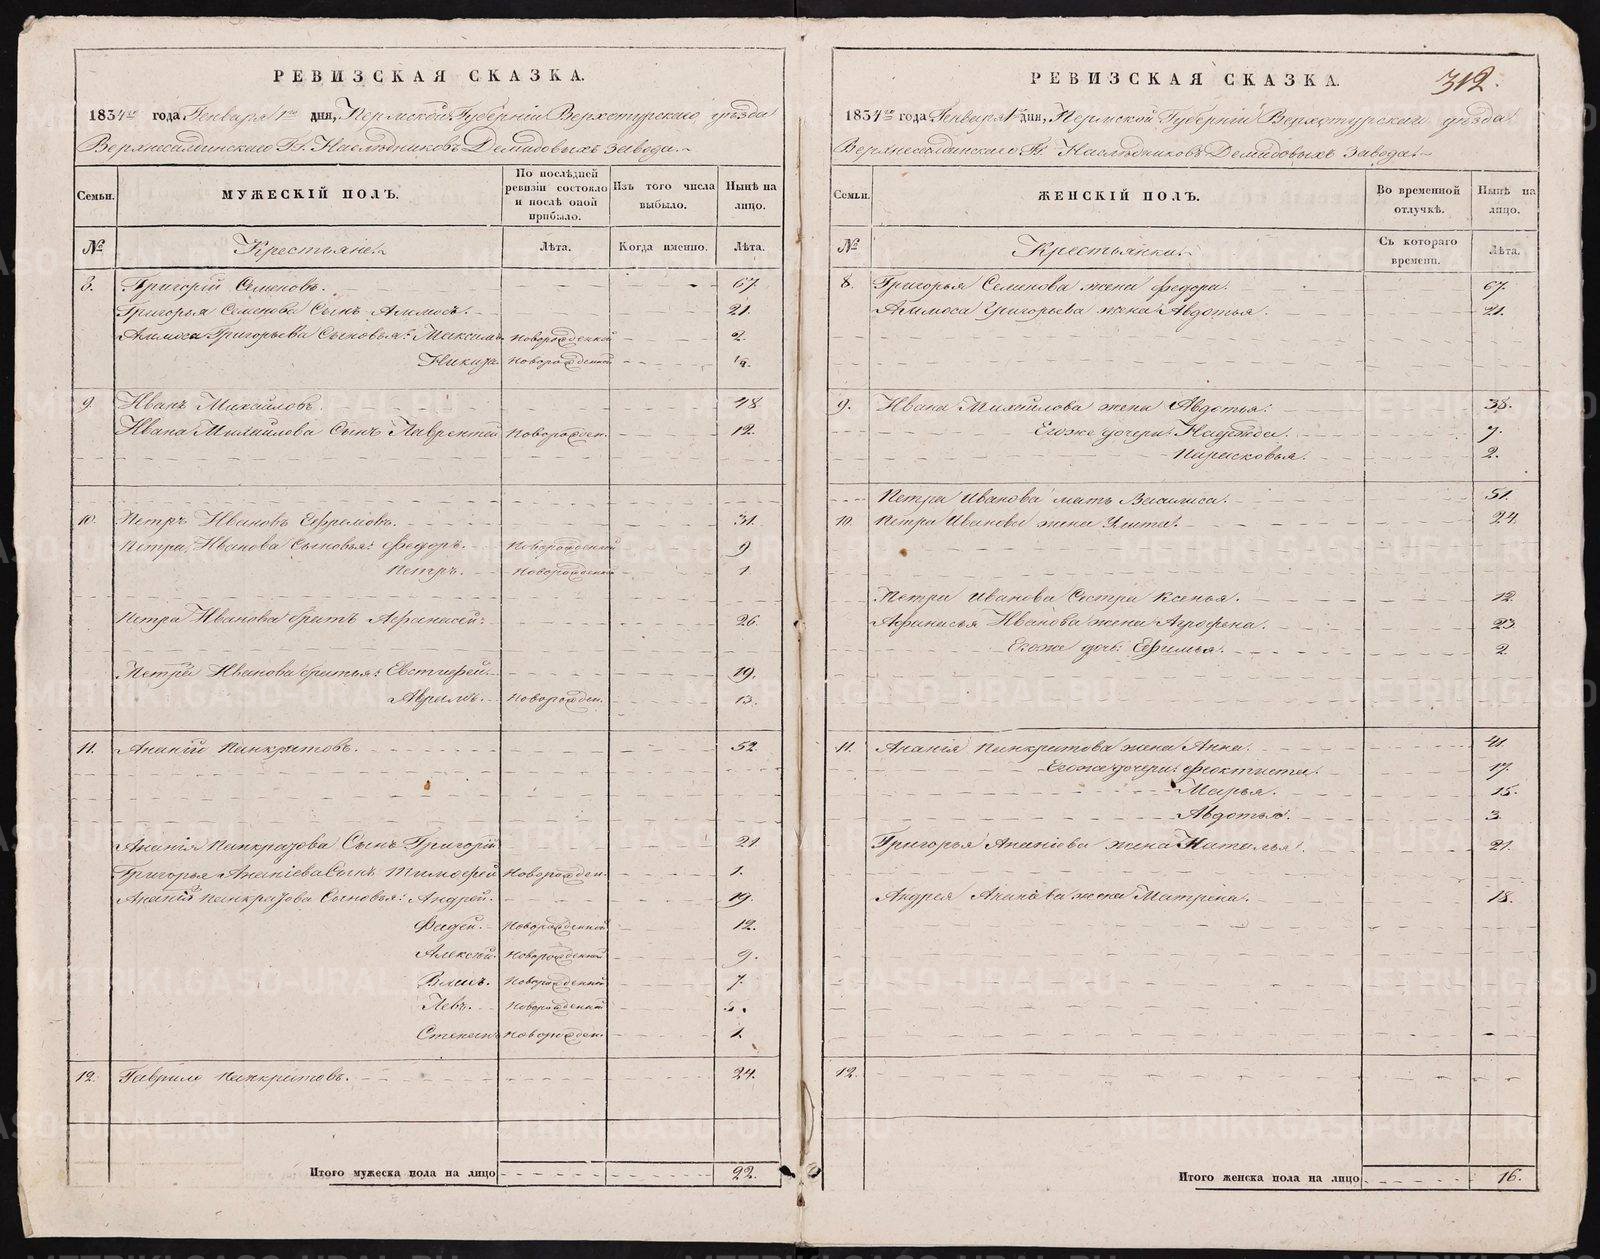 РЕВИЗСКАЯ СКАЗКА.
1834го года Генваря 1го дня, Пермской Губерніи Верхотурскаго уѣзда
Верхнесалдинскаго Гг. Наслѣдниковъ Демидовыхъ завода.
Семьи.
МУЖЕСКІЙ ПОЛЪ.
По послѣдней ревизіи состояло и послѣ оной прибыло.
Изъ того числа выбыло.
Нынѣ на лицо.
№
Крестьяне.
Лѣта.
Когда именно.
Лѣта.
8. Григорій Семеновъ. 67.
Григорья Семенова Сынъ Аммосъ. 21.
Аммоса Григорьева Сыновья: Максимъ Новорожденной 2.
Никита Новорожденной
9. Иванъ Михайловъ. 48
Ивана Михайлова Сынъ Лаврентей Новорожден. 12.
10. Петръ Ивановъ Ефремовъ. 31.
Петра Иванова Сыновья: Федоръ. Новорожденной 9
Петръ. Новорожденной 1
Петра Иванова братъ Афанасей: 26.
Петра Иванова братья: Евстифей. 19.
Абрамъ. Новорожден. 13.
11. Ананій Панкратовъ. 52
Ананія Панкратова Сынъ Григорій 21
Григорья Ананіева Сынъ Тимофей Новорожден. 1.
Ананія Панкратова Сыновья: Андрей. 19.
Фадей. Новорожденной 12.
Алексѣй. Новорожденной 9.
Власъ. Новорожденной 7.
Левъ. Новорожденной 3.
Степанъ Новорожден. 1.
12. Гаврило Панкратовъ. 24.
Итого мужеска пола на лицо 22.
РЕВИЗСКАЯ СКАЗКА.
312.
1834го года Генваря 1го дня, Пермской Губерніи Верхотурскаго уѣзда
Верхнесалдинскаго Гг. Наслѣдниковъ Демидовыхъ завода.
Семьи.
ЖЕНСКІЙ ПОЛЪ.
Во временной отлучкѣ.
Нынѣ на лицо.
№
Крестьянки.
Съ котораго времени.
Лѣта.
8. Григорья Семенова жена Федора. 67.
Аммоса Григорьева жена Авдотья. 21.
9. Ивана Михайлова жена Авдотья. 38.
Его же дочери: Надежда. 7.
Парасковья. 2.
Петра Иванова мать Василиса. 51.
10. Петра Иванова жена Улита. 24.
Петра Иванова Сестра Ксенья. 12.
Афанасья Иванова жена Агрофена. 23
Его же дочь: Ефимья. 2
11. Ананія Панкратова жена Анна. 41
Его же дочери: Феоктиста. 17.
Марья. 15.
Авдотья. 3
Григорья Ананіева жена Наталья. 21.
Андрея Ананіева жена Матрена. 18.
12.
Итого женска пола на лицо 16.
METRIKI.GASO-URAL.RU